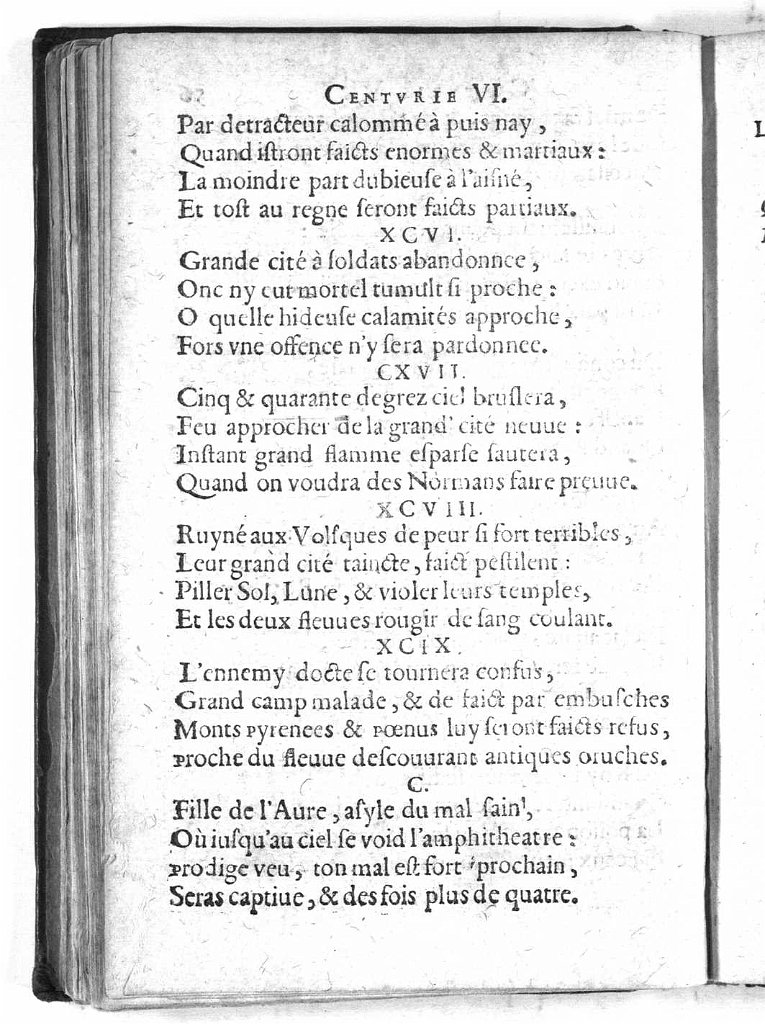 CENTVRIE VI.
Par detracteur calommé à puis nay,
Quand iſtront faicts enormes & martiaux:
La moindre part dubieuſe à l'aiſné,
Et toſt au regne ſeront faicts partiaux.
XCVI.
Grande cité à ſoldats abandonnee,
Onc ny eut mortel tumult ſi proche:
O quelle hideuſe calamités approche,
Fors vne offence n'y ſera pardonnee.
CXVII.
Cinq & quarante degrez ciel bruſlera,
Feu approcher de la grand' cité neuue:
Inſtant grand flamme eſparſe ſautera,
Quand on voudra des Normans faire preuue.
XCVIII.
Ruyné aux Volſques de peur ſi fort terribles,
Leur grand cité taincte, faict peſtilent:
Piller Sol, Lune, & violer leurs temples,
Et les deux fleuues rougir de ſang coulant.
XCIX.
L'ennemy docte ſe tournera confus,
Grand camp malade, & de faict par embuſches
Monts pyrenees & pœnus luy ſeront faicts refus,
proche du fleuue deſcouurant antiques oruches.
C.
Fille de l'Aure, aſyle du mal ſain,
Où iuſqu'au ciel ſe void l'amphitheatre:
prodige veu, ton mal eſt fort prochain,
Seras captiue, & des fois plus de quatre.